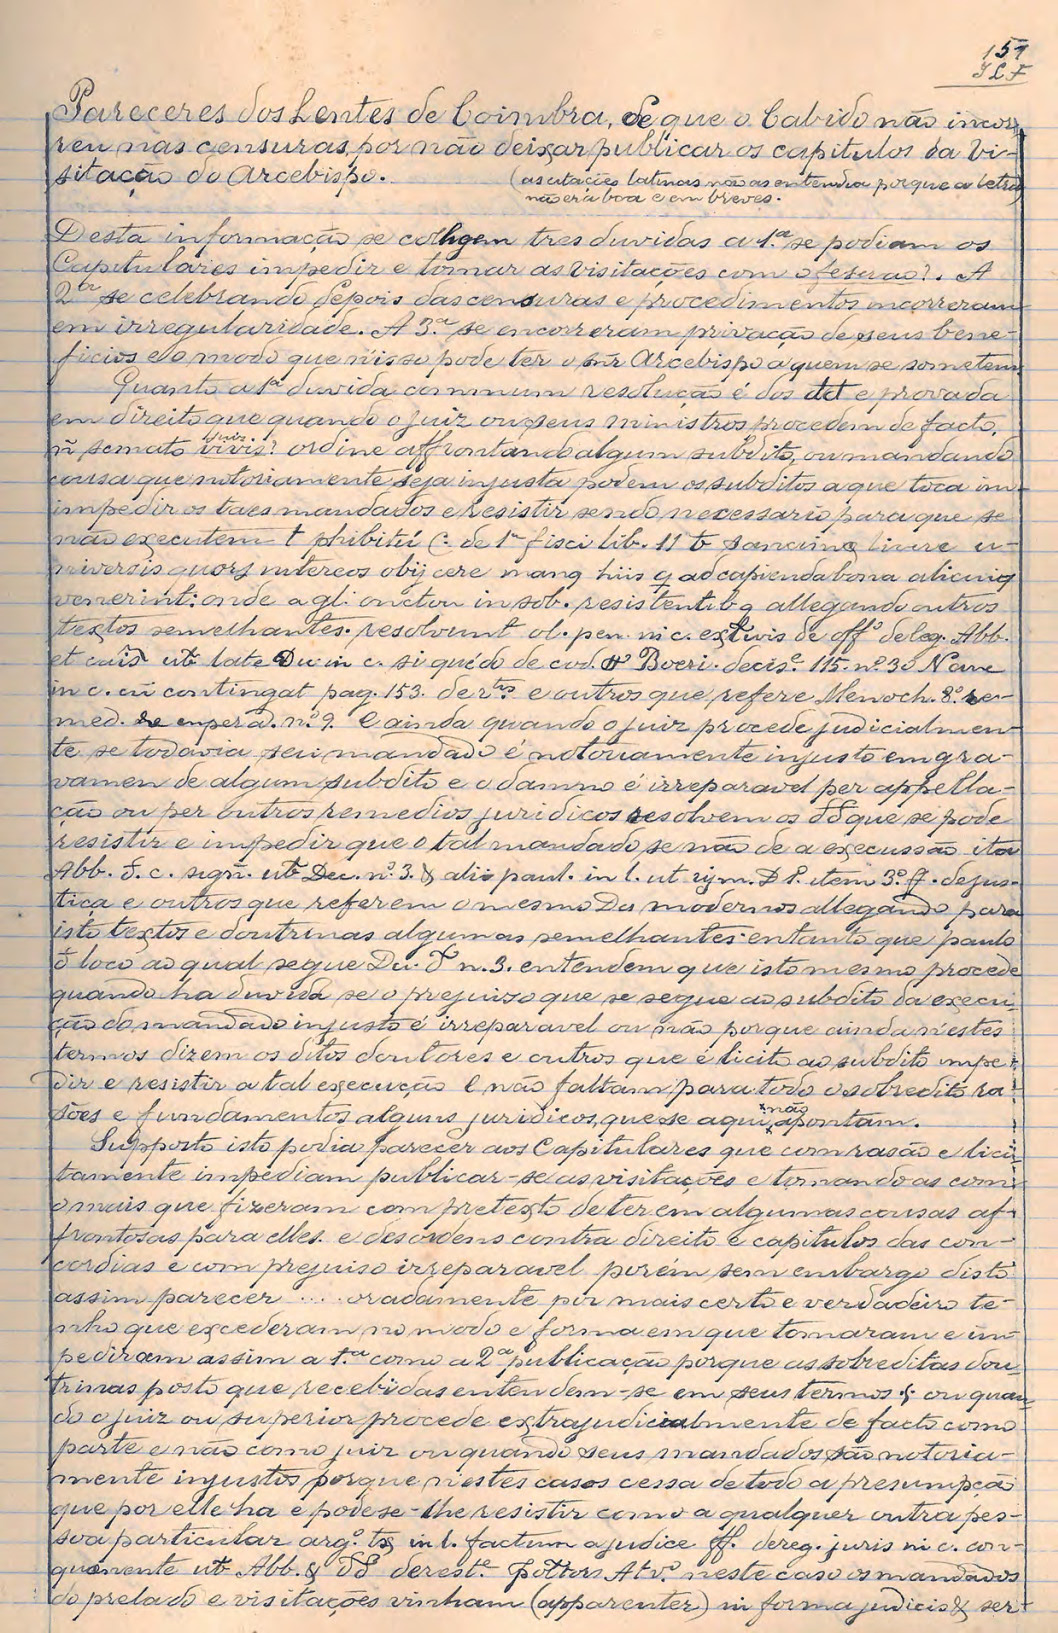 151
J L F
Pareceres dos Lentes de Coimbra, de que o Cabido não incor-
reu nas censuras, por não deixar publicar os capitulos da Vi-
sitação do Arcebispo.
(as citações latinas não as entendia porque a letra
não era boa e em breves.
Desta informação se colhgem tres duvidas a 1.ª se podiam os
Capitulares impedir e tomar as visitações com o fesuao?. A
2.ª se celebrando depois das censuras e procedimentos incorreram
em irregularidade. A 3.ª se encorreram privação de seus bene-
ficios e o modo que n'isso pode ter o snr Arcebispo a quem se sometem.
Quanto a 1ª duvida commum resolução é dos dd e provada
em direito que quando o juiz ou seus ministros procedem de facto,
ñ semato vivis? ordine affrontando algum subdito, ou mandando
juris.
cousa que notoriamente seja injusta podem os subditos a que toca im-
impedir os taes mandados e resistir sendo necessario para que se
não executem t phibitú C. de 1ª fisci lib. 11 b sancimq livre u-
niversis quorz intereos obijcere manq hiis q ad capienda bona alicuiq
venerint: onde a gl. onctou in sob. resistentibq allegando outros
textos semelhantes. resolvunt ol. pen. ni c. extivis de offº deleg. Abb.
et cuis utb late Du. in c. si quédo de cod. ttº Boeri. decis.e 115. nº 30 Nanc
in c. cú contingat pag. 153. de r.tis e outros que refere Menoch. 8.º re-
med. de emperâ. nº 9. E ainda quando o juiz procede judicialmen-
te se todavia seu mandado é notoriamente injusto em gra-
vamen de algum subdito e o damno é irreparavel per appella-
ção ou per outros remedios juridicos resolvem os DD que se pode
resistir e impedir que o tal mandado se não de a execussão ita
Abb. J. c. sign. utb Dec. nº 3. & alio paul. in l. ut vjm. D P. item 3.º ff. de jus-
tiça e outros que referem o mesmo Du modernos allegando para
isto textos e doutrinas algumas semelhantes: entanto que paulo
õ loco ao qual segue Du. J n. 3. entendem que isto mesmo procede
quando ha duvida se o prejuizo que se segue ao subdito da execu-
ção do mandado injusto é irreparavel ou não porque ainda n'estes
termos dizem os ditos doutores e outros que é licito ao subdito impe-
dir e resistir a tal execução E não faltam para todo o sobredito ra-
sões e fundamentos alguns juridicos, que se aqui não apontam.
Supposto isto podia parecer aos Capitulares que com rasão e lici-
tamente impediam publicar-se as visitações e tomando as com
o mais que fizeram com pretexto de terem algumas cousas af-
frontosas para elles. e desordens contra direito e capitulos das con-
cordias e com prejuiso irreparavel porém sem embargo disto
assim parecer .... oradamente por mais certo e verdadeiro te-
nho que excederam no modo e forma em que tomaram e im-
pediram assim a 1.ª como a 2ª publicação porque as sobreditas dou-
trinas posto que recebidas entendem-se em seus termos .s. ou quan-
do o juiz ou superior procede extrajudicialmente de facto como
parte e não como juiz ou quando seus mandados são notoria-
mente injustos porque n'estes casos cessa de todo a presumpção
que por elle ha e pode se-lhe resistir como a qualquer outra pes-
soa particular argº. tx in l. factum a judice ff. de reg. juris ni c. con-
quamente utb Abb. & DD de rest.e pottors At v.º neste caso os mandados
do prelado e visitações vinham (apparenter) in forma judicis & ser-